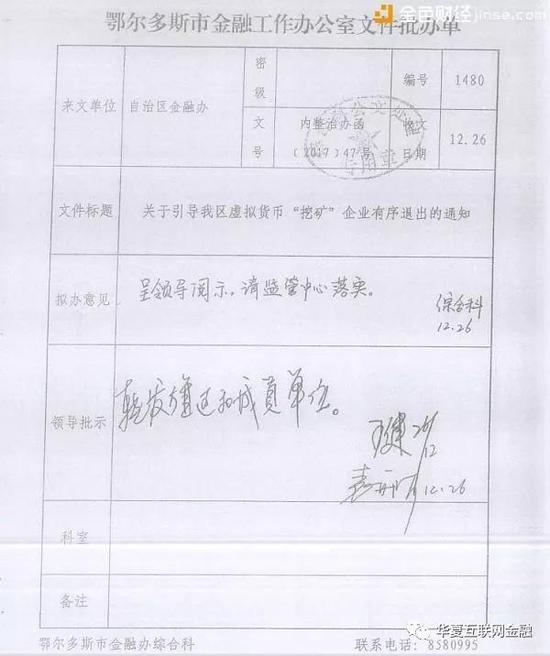 鄂尔多斯市金融工作办公室文件批办单
金色财经jinse.com
来文单位
自治区金融办
密级
编号
1480
文号
内整治办函
〔2017〕47号
收文日期
12.26
文件标题
关于引导我区虚拟货币“挖矿”企业有序退出的通知
拟办意见
呈领导阅示。请监管中心落实。
综合科
12.26
领导批示
转发旗区和成员单位。
12.26
科室
备注
华夏互联网金融
鄂尔多斯市金融办综合科
联系电话：8580995